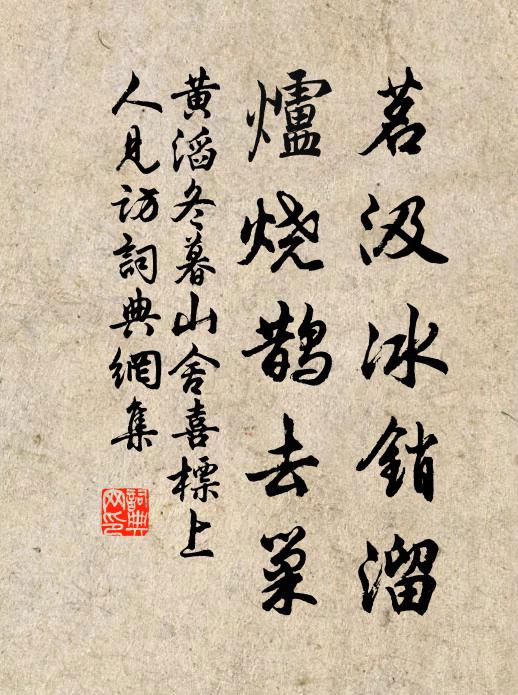 茗汲冰銷溜
爐燒鵲去巢
黄滔冬暮山舍喜標上
人見訪詞典網集
詞典
网印